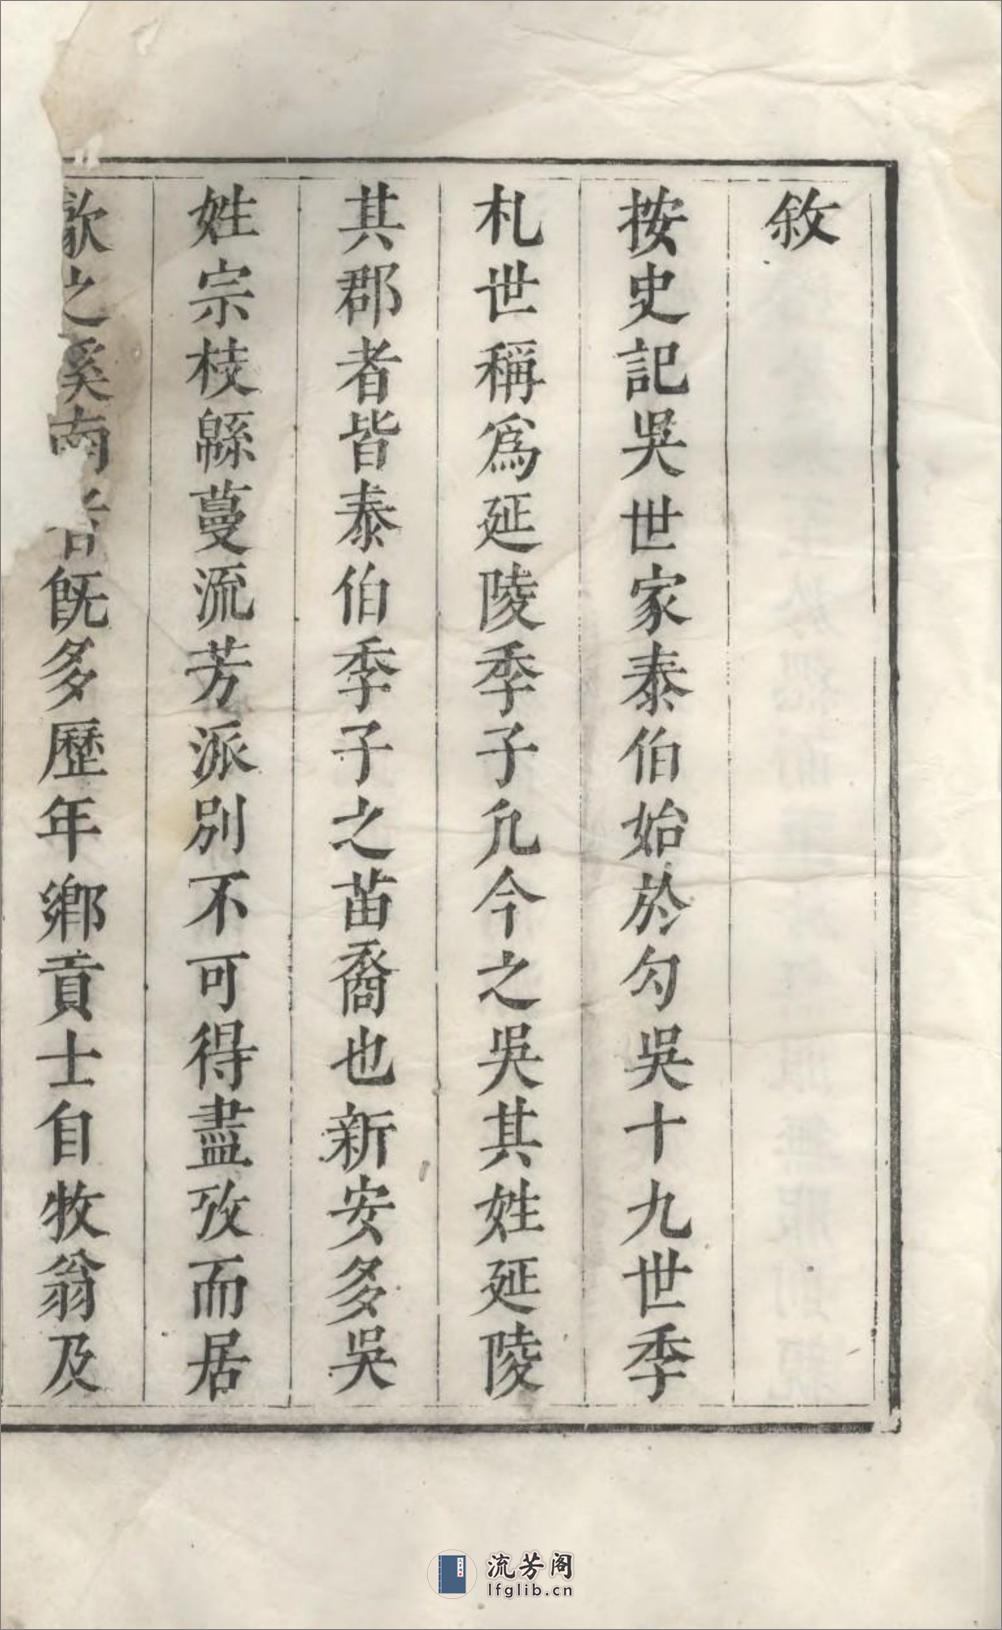 敘
按史記吳世家泰伯始於勾吳十九世季
札世稱爲延陵季子凡今之吳其姓延陵
其郡者皆泰伯季子之苗裔也新安多吳
姓宗枝緜蔓流芳派別不可得盡攷而居
歙之溪南者旣多歷年鄉貢士自牧翁及
流芳阁
lfglib.cn